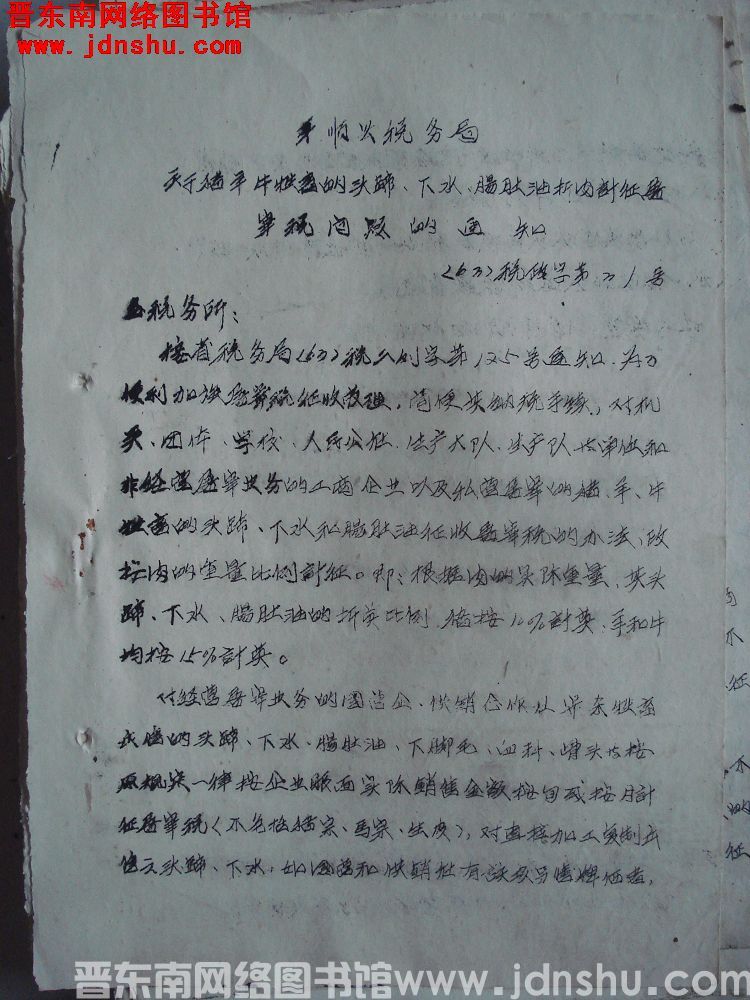 晋东南网络图书馆
www.jdnshu.com
平顺县税务局
关于猪羊牛牲畜的头蹄、下水、腸肚油折肉計征屠
宰税问题的通知
(63)税政字第31号
各税务所:
接省税务局(63)税三刘字第125号通知,为了
便利加强屠宰税征收管理,简便其纳税手续,对机
关、团体、学校、人民公社、生产大队、生产队等单位和
非经营屠宰业务的工商企业以及私营屠宰的猪、羊、牛
牲畜的头蹄、下水和腸肚油征收屠宰税的办法,改
按肉的重量比例計征。即:根据肉的实际重量,其头
蹄、下水、腸肚油的折算比例,猪按10%計算,羊和牛
均按15%計算。
对经营屠宰业务的国营企、供销合作社宰杀牲畜
的头蹄、下水、腸肚油、下脚毛、血料、槽头均按
原规定一律按企业账面实际銷售金額按旬或按月計
征屠宰税(不包括猪宗、馬宗、生皮),对直接加工复制出
售之头蹄、下水,如国营和供銷社有
晋东南网络图书馆www.jdnshu.com